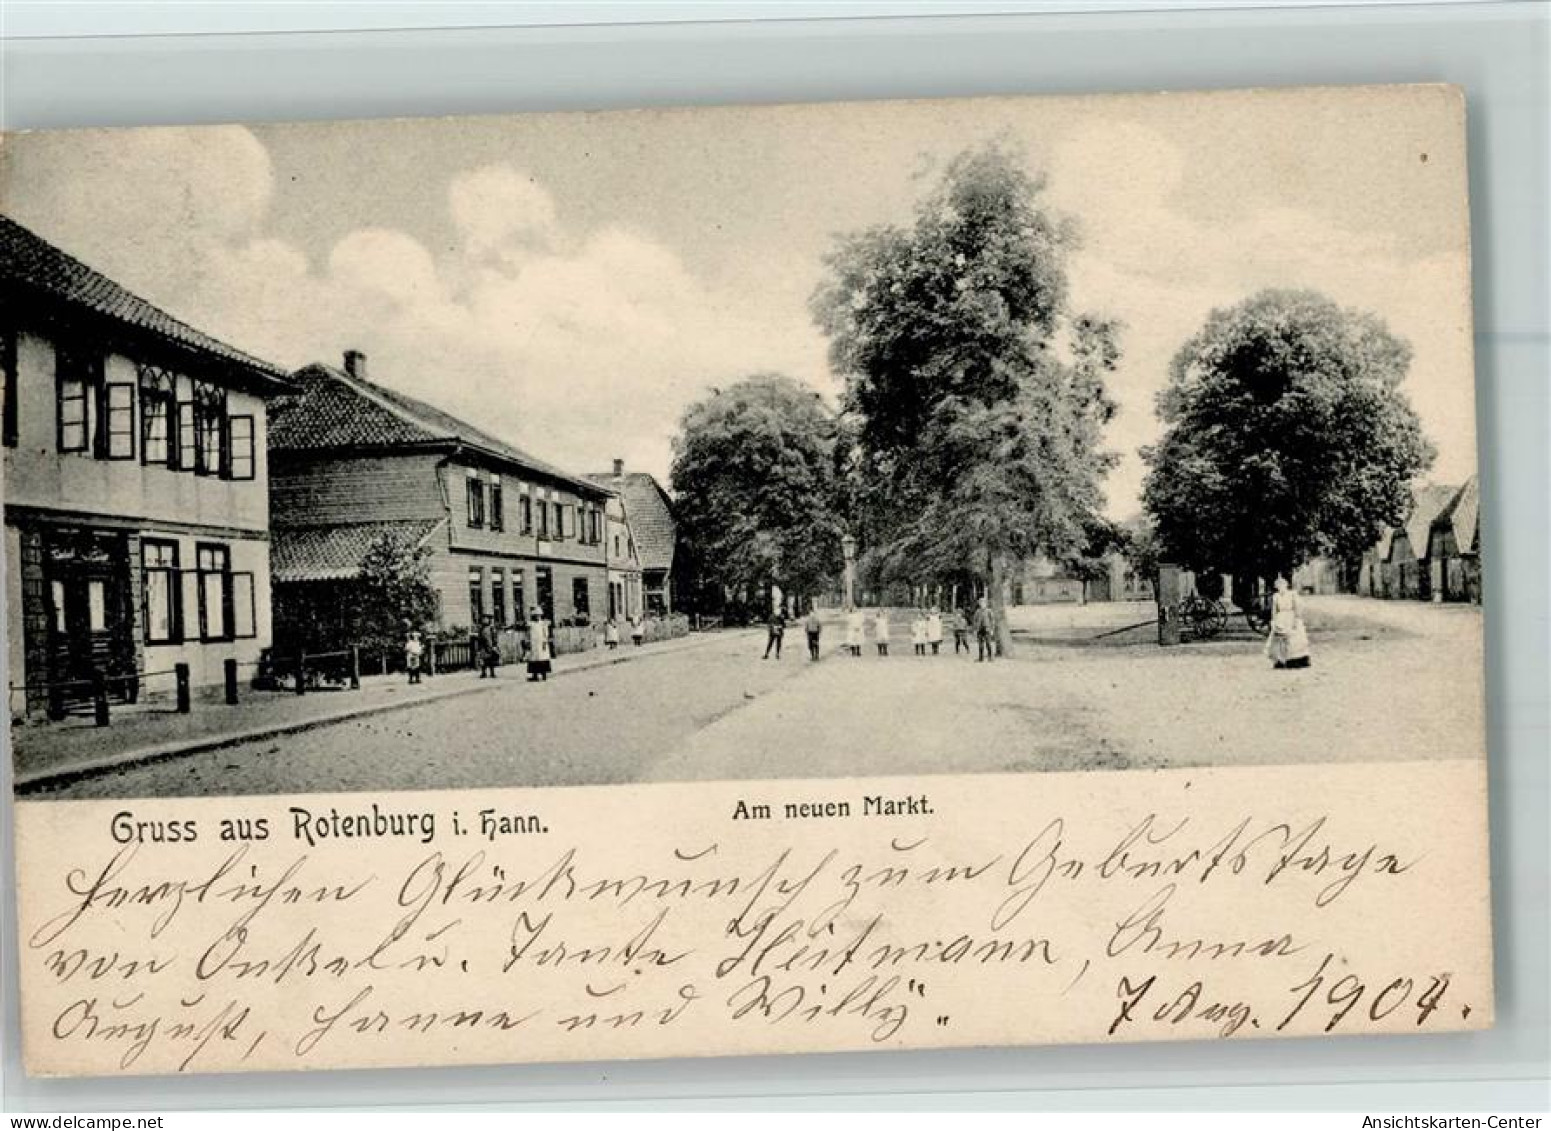 Gruss aus Rotenburg i. Hann.
Am neuen Markt.
Herzlichen Glückwunsch zum Geburtstage
von Onkel u. Tante Heitmann, Anna,
August, Hanne und Willÿ.
7 Aug. 1904.
www.delcampe.net
Ansichtskarten-Center